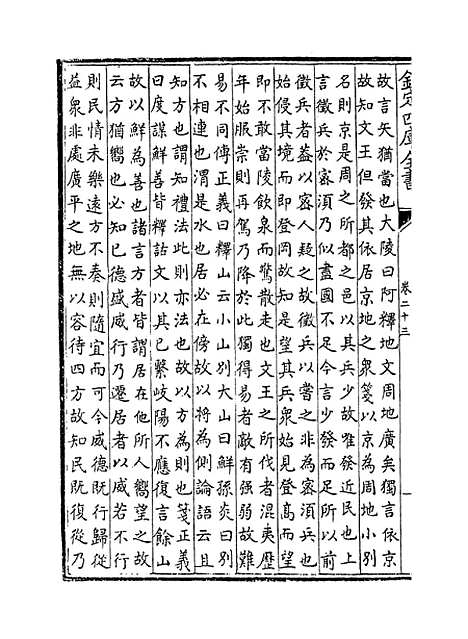 欽定四庫全書
卷二十三
故言矢猶當也大陵曰阿釋地文周地廣矣獨言依京
故知文王但發其依居京地之衆箋以京為周地小别
名則京是周之所都之邑以其兵少故唯發近民也上
言徵兵於密須乃似盡國不足今言少發而足所以前
徵兵者蓋以密人疑之故徵兵以嘗之非為須兵也
始侵其境而即登岡故知是望其兵衆始見登高而望
即不敢當陵飲泉而驚散走也文王之所伐者混夷歴
年始服崇則再駕乃降於此獨得易者敵有强弱故難
易不同傳正義曰釋山云小山别大山曰鮮孫炎曰别
不相連也渭是水也居必在傍故以將為側論語云且
知方也謂知禮法此則亦法也故以方為則也箋正義
曰度謀鮮善皆釋詁文以其已繫岐陽不應復言餘山
故以鮮為善也諸言方者皆謂居在他所人嚮望之故
云方猶嚮也必知已徳盛威行乃遷居者以威若不行
則民情未樂逺方不奏則隨宜而可令威徳既行歸從
益衆非處廣平之地無以容待四方故知民既復從乃